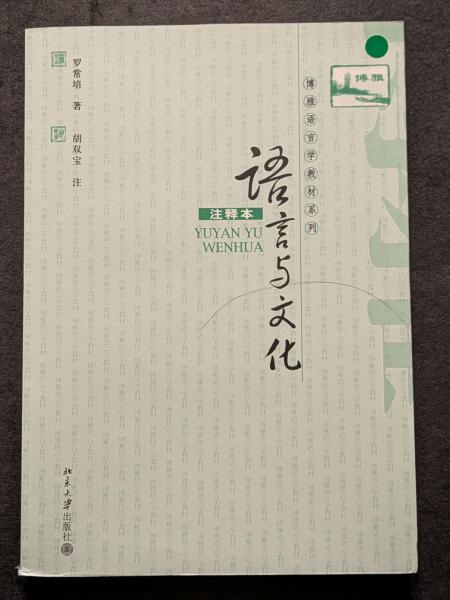 博雅
博雅语言学教材系列
语言与文化
注释本
YUYAN YU
WENHUA
罗常培 著
胡双宝 注
北京大学出版社